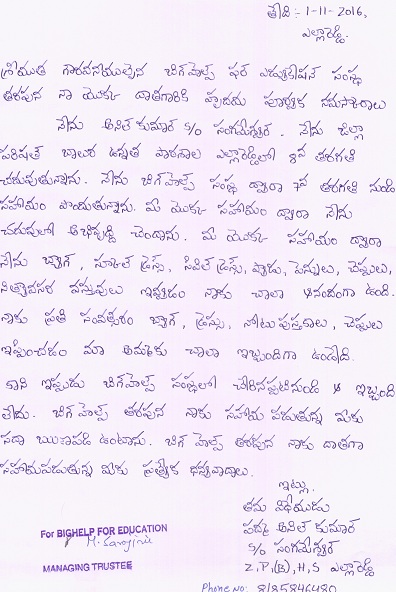 తేది :- 1-11-2016,
ఎల్లారెడ్డి.
శ్రీయుత గౌరవనీయులైన బిగ్ హెల్ప్ ఫర్ ఎడ్యుకేషన్ సంస్థ
తరపున నా యొక్క దాతగారికి హృదయ పూర్వక నమస్కారాలు
నేను అనిల్ కుమార్ s/o సంగమేశ్వర్. నేను జిల్లా
పరిషత్ బాలుర ఉన్నత పాఠశాల ఎల్లారెడ్డిలో 8వ తరగతి
చదువుతున్నాను. నేను బిగ్ హెల్ప్ సంస్థ ద్వారా 7వ తరగతి నుండి
సహాయం పొందుతున్నాను. మీ యొక్క సహాయం ద్వారా నేను
చదువులో అభివృద్ది చెందాను. మీ యొక్క సహాయం ద్వారా
నేను బ్యాగ్, స్కూల్ డ్రెస్సు, సివిల్ డ్రెస్సు, ప్యాడు, పెన్నులు, చెప్పులు,
నిత్యావసర వస్తువులు ఇవ్వడం నాకు చాలా ఆనందంగా ఉంది.
నాకు ప్రతి సంవత్సరం బ్యాగ్, డ్రెస్సు, నోటు పుస్తకాలు, చెప్పులు
ఇప్పించడం మా అమ్మకు చాలా ఇబ్బందిగా ఉండేది.
కాని ఇప్పుడు బిగ్ హెల్ప్ సంస్థలో చేరినప్పటినుండి ఇబ్బంది
లేదు. బిగ్ హెల్ప్ తరపున నాకు సహాయ పడుతున్న మీకు
సదా ఋణపడి ఉంటాను. బిగ్ హెల్ప్ తరపున నాకు దాతగా
సహాయపడుతున్న మీకు ప్రత్యేక ధన్యవాదాలు.
ఇట్లు.
తమ విధేయుడు
పద్మ అనిల్ కుమార్
s/o సంగమేశ్వర్
Z,P,(B),H,S ఎల్లారెడ్డి
For BIGHELP FOR EDUCATION
M. Sarojini
MANAGING TRUSTEE
Phone NO: 8185846480